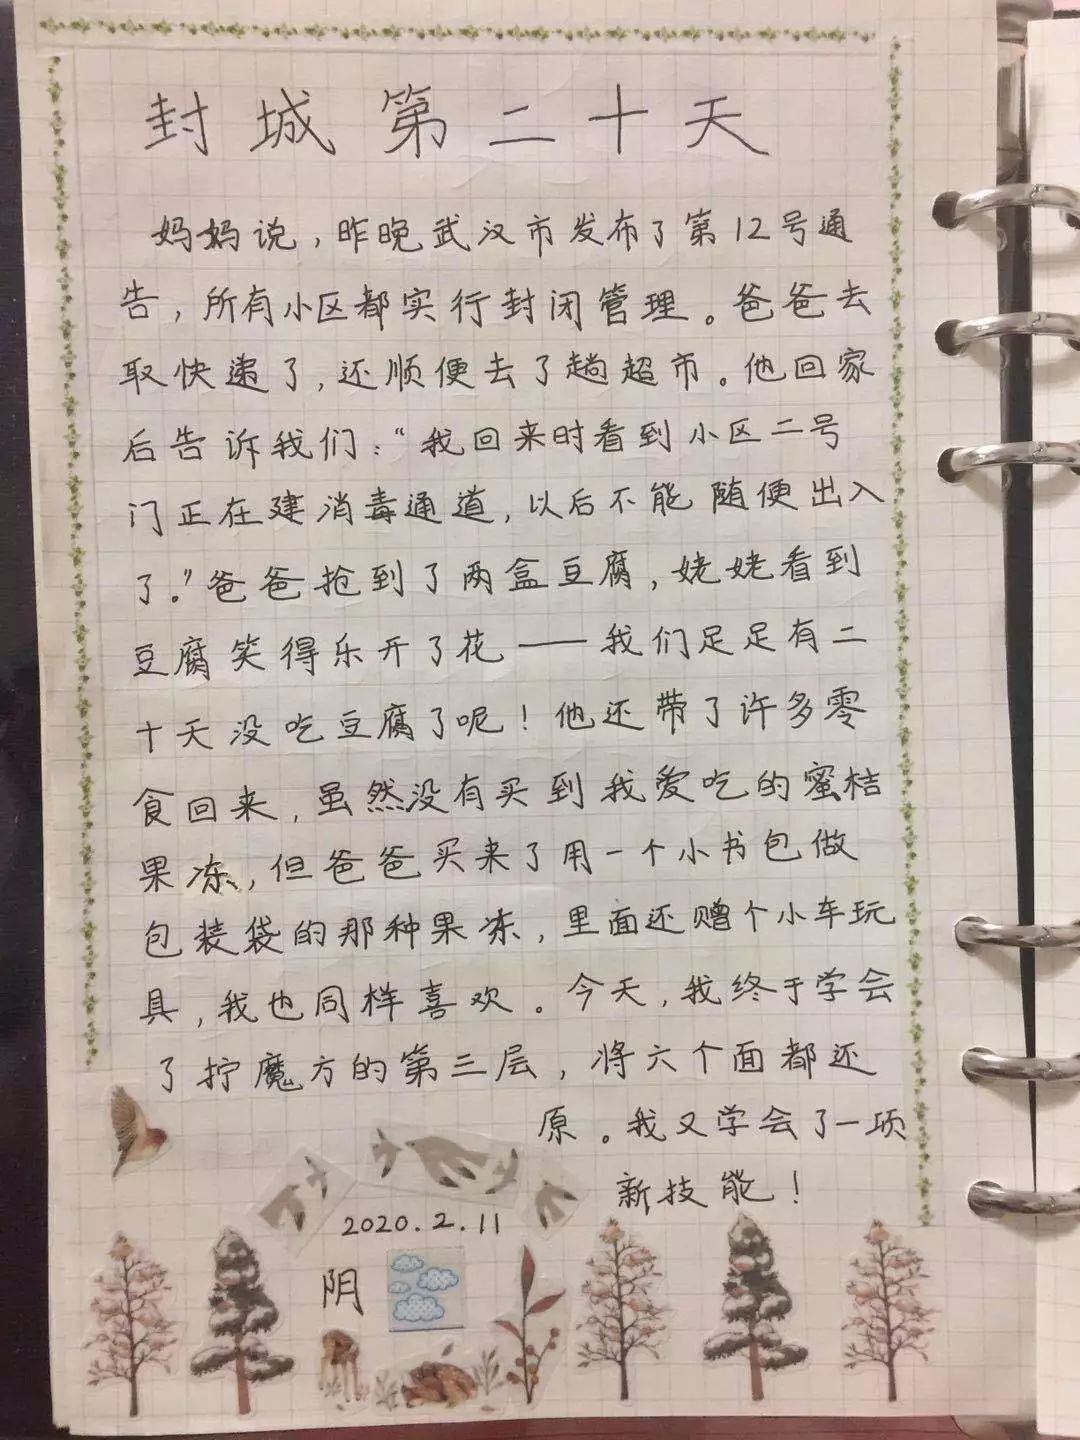 封城第二十天
妈妈说，昨晚武汉市发布了第12号通
告，所有小区都实行封闭管理。爸爸去
取快递了，还顺便去了趟超市。他回家
后告诉我们：“我回来时看到小区二号
门正在建消毒通道，以后不能随便出入
了。”爸爸抢到了两盒豆腐，姥姥看到
豆腐笑得乐开了花——我们足足有二
十天没吃豆腐了呢！他还带了许多零
食回来，虽然没有买到我爱吃的蜜桔
果冻，但爸爸买来了用一个小书包做
包装袋的那种果冻，里面还赠个小车玩
具，我也同样喜欢。今天，我终于学会
了拧魔方的第三层，将六个面都还
原。我又学会了一项
新技能！
2020.2.11
阴